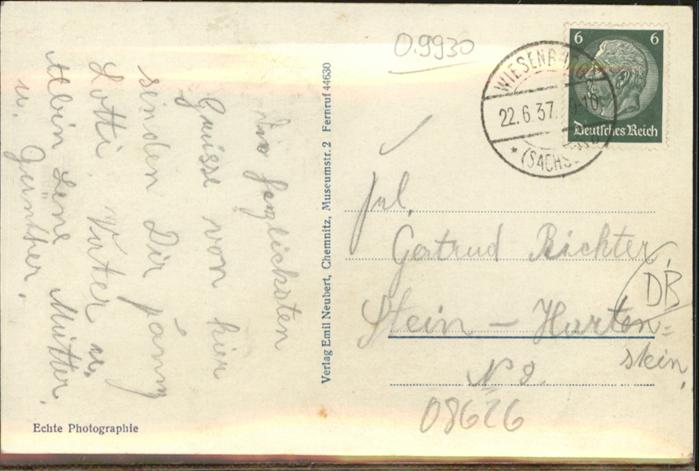 Die herzlichsten
Grüsse von hier
senden Dir
Lotti, Vater u.
Mutter,
Albin Lene
u. Günther.
Echte Photographie
Verlag Emil Neubert, Chemnitz, Museumstr. 2 Fernruf 44630
0.9930
WIESENB
22.6.37.
* (SACHS
6 6
Deutsches Reich
Frl.
Gertrud Richter,
Stein – Harten=
stein,
DB
No 2.
08626